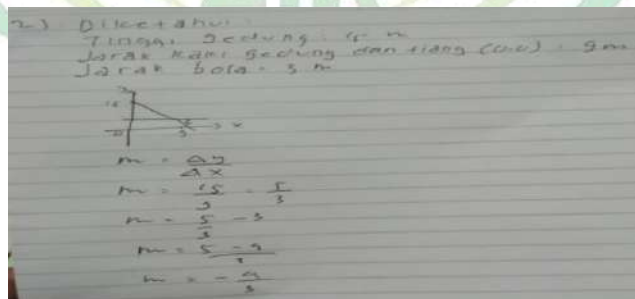 2) Diketahui:
Tinggi gedung: 15 m
Jarak kami gedung dan tiang (u.u) : 9 m
Jarak bola = 3 m
y
15
x
9
m = Δy / Δx
m = 15 / 9 = 5 / 3
m = 5 / 3 - 3
m = 5 - 9 / 3
m = - 4 / 3